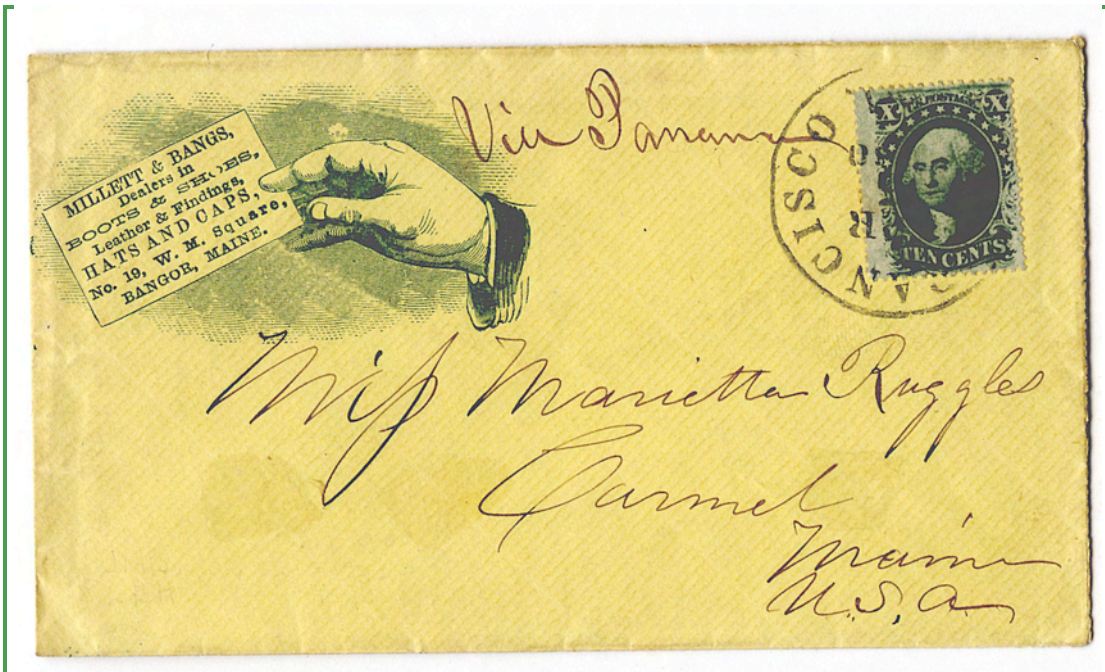 Via Panama
MILLETT & BANGS,
Dealers in
BOOTS & SHOES,
Leather & Findings,
HATS AND CAPS,
No. 19, W. M. Square,
BANGOR, MAINE.
RANCISCO
R
X U.S. POSTAGE X
TEN CENTS
Miss Marietta Ruggles
Carmel
Maine
U.S.A.